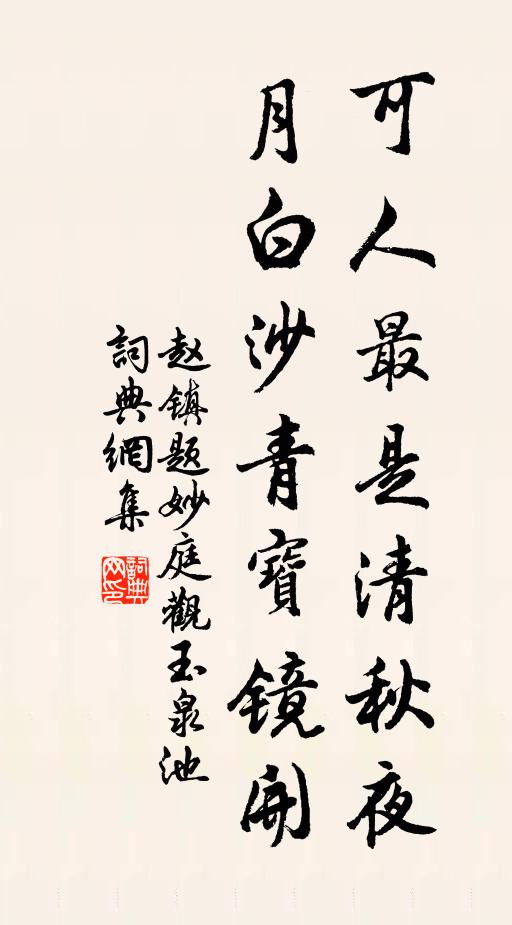 可人最是清秋夜
月白沙青寶鏡開
赵镇题妙庭觀玉泉池
詞典網集
詞典網印